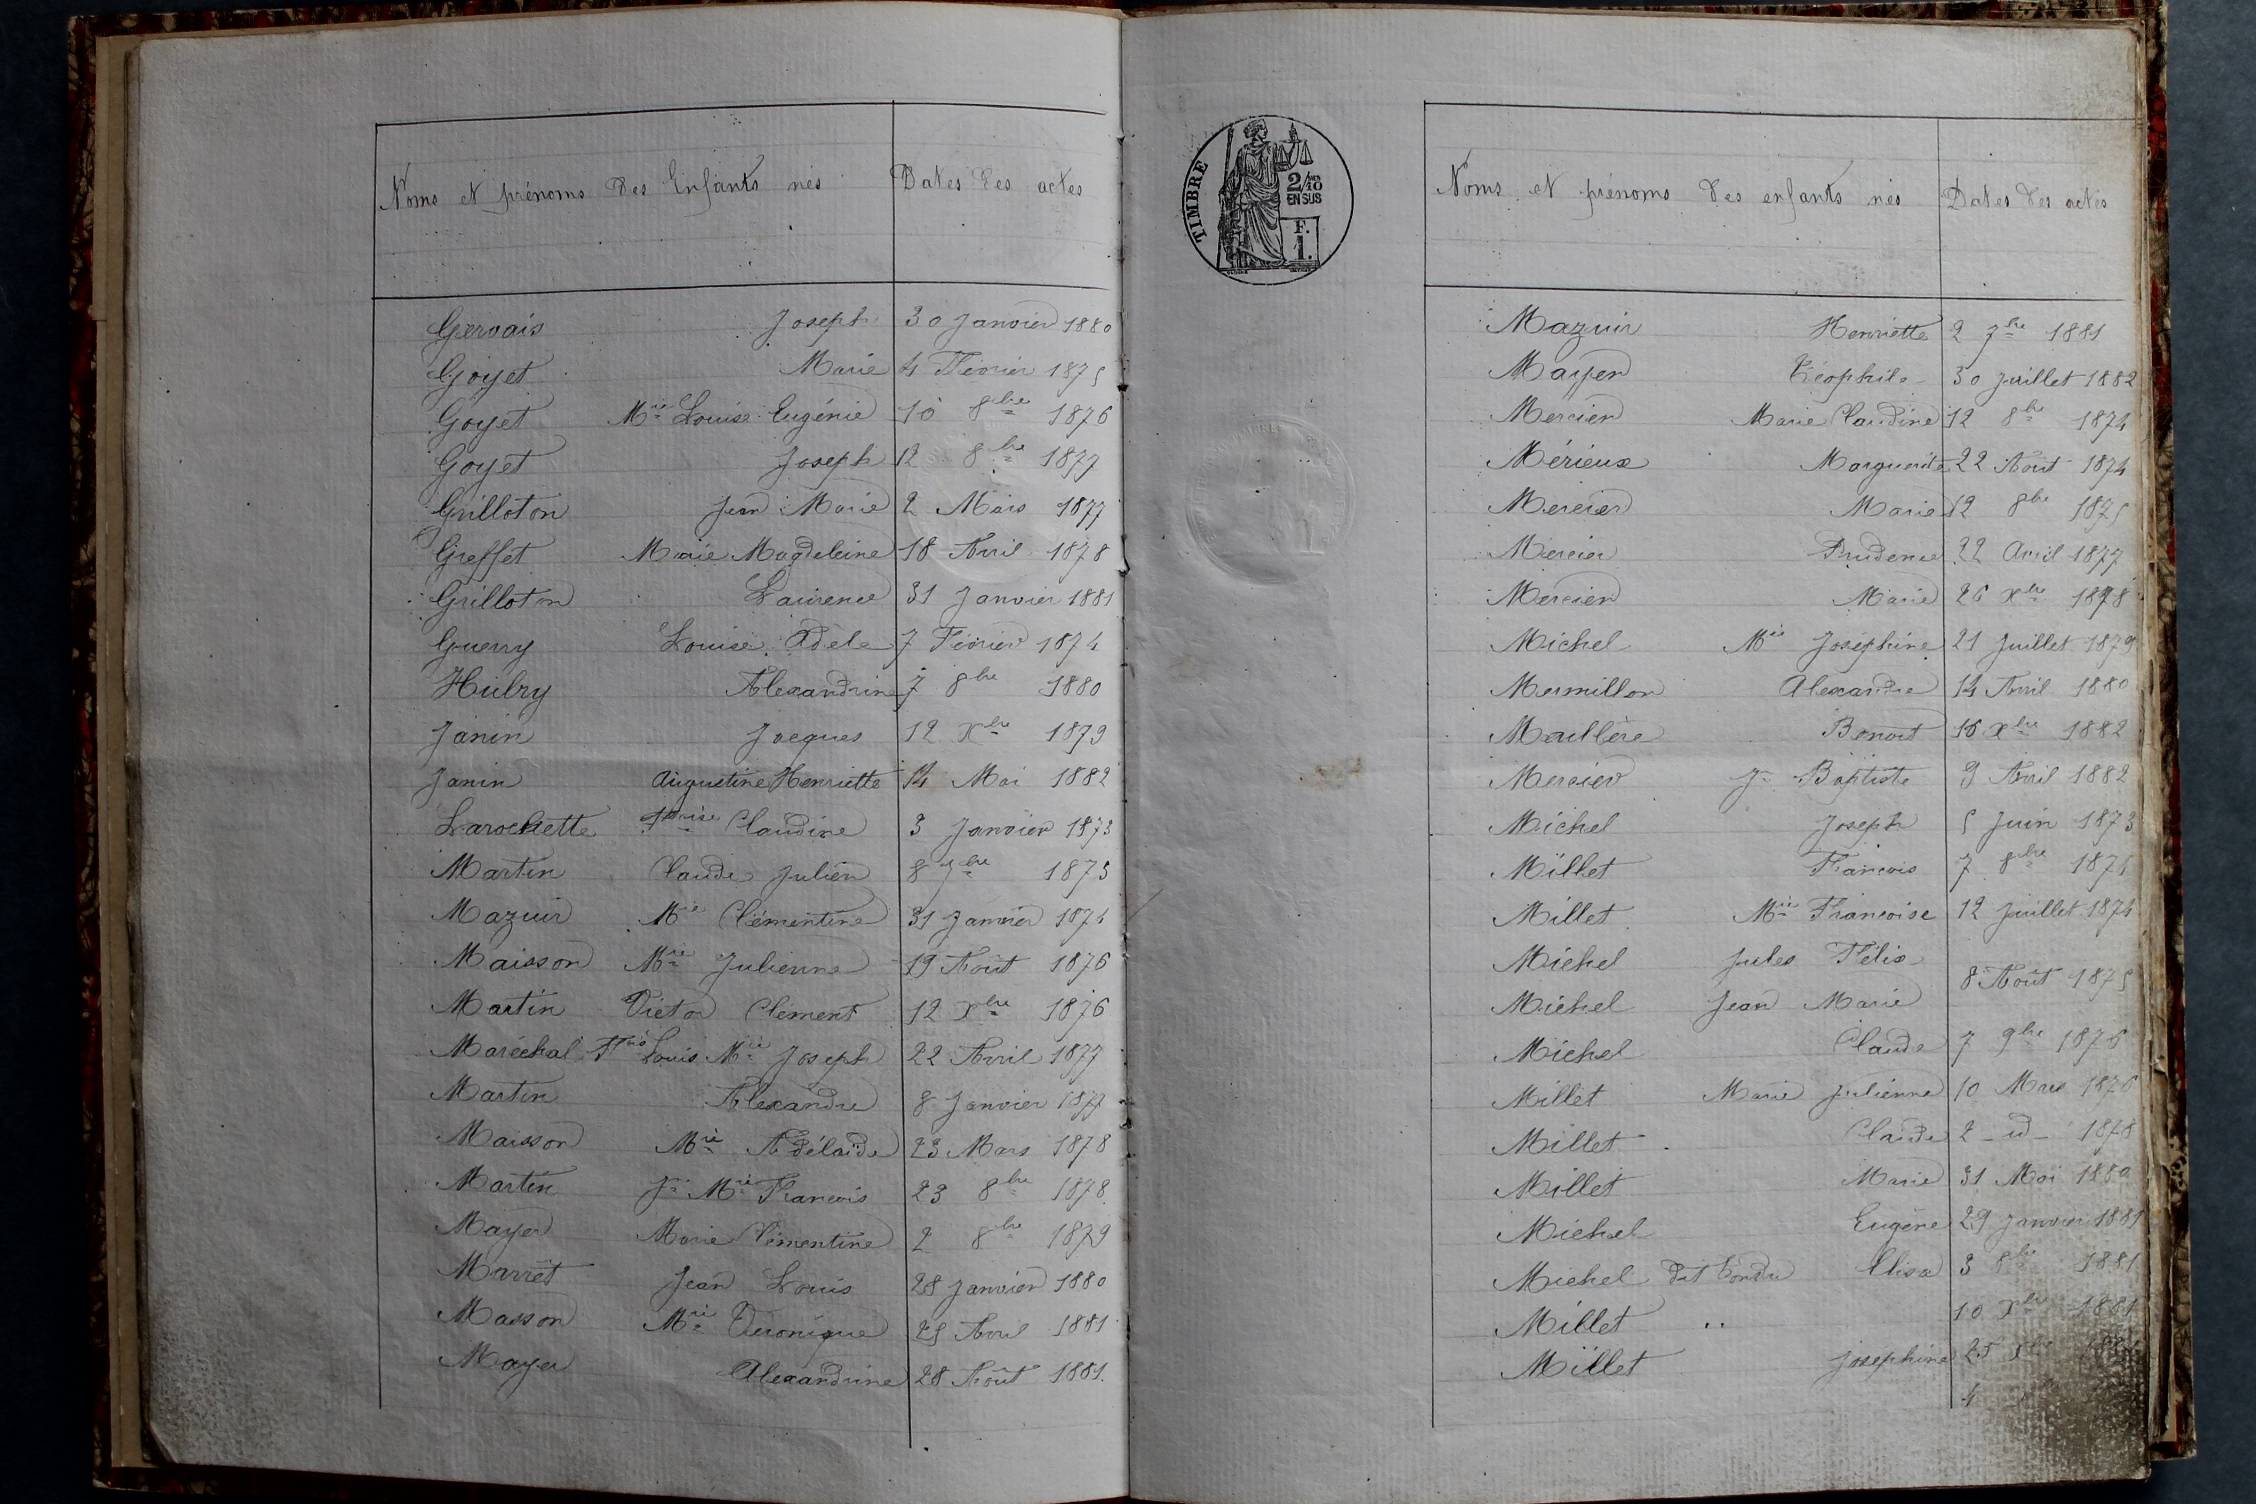 Noms et prénoms des Enfants nés Dates des actes
Gervais Joseph 30 Janvier 1880
Goyet Marie 4 Février 1875
Goyet Mie Louise Eugénie 10 8bre 1876
Goyet Joseph 12 8bre 1877
Grilloton Jean Marie 2 Mars 1877
Greffet Marie Magdeleine 18 Avril 1878
Grilloton Laurence 31 Janvier 1881
Guerry Louise Adele 7 Février 1874
Alexandrine 7 8bre 1880
Janin Jacques 12 Xbre 1879
Janin Augustine Henriette 14 Mai 1882
Larochette Claudine 3 Janvier 1873
Martin Claude Julien 8 7bre 1873
Mazuir Mie Clémentine 31 Janvier 1874
Maisson Mie Julienne 19 Août 1876
Martin Victor Clément 12 Xbre 1876
Maréchal Fçois Louis Mie Joseph 22 Avril 1877
Martin Alexandre 8 Janvier 1877
Maisson Mie Adélaïde 23 Mars 1878
Martin Jn Mie François 23 8bre 1878
Mayer Marie Clémentine 2 8bre 1879
Marret Jean Louis 28 Janvier 1880
Masson Mie Véronique 25 Avril 1881
Mayer Alexandrine 28 Août 1881.
TIMBRE
2/10
EN SUS
F.
1.
Noms et prénoms des enfants nés Dates des actes
Mazuir Henriette 2 7bre 1881
Mayer Téophile 30 Juillet 1882
Mercier Marie Claudine 12 8bre 1874
Mérieux Marguerite 22 Août 1874
Mercier Marie 12 8bre 1875
Mercier Prudence 22 Avril 1877
Mercier Marie 26 Xbre 1878
Michel Mie Joséphine 21 Juillet 1879
Mermillon Alexandre 14 Avril 1880
Benoit 16 Xbre 1882
Mercier Jn Baptiste 9 Avril 1882
Michel Joseph 5 Juin 1873
Millet François 7 8bre
Millet Mie Françoise 12 Juillet 1874
Michel Jules Félix
8 Août 1875
Michel Jean Marie
Michel Claude 7 9bre 1876
Millet Marie Julienne 10 Mars 1876
Millet Claude 2 - id - 1878
Millet Marie 31 Mai 1880
Michel Eugène 29 Janvier 1881
Michel dit Elisa 3 8bre 1881
Millet .. 10 Xbre 1881
Millet Joséphine 25 Xbre
4